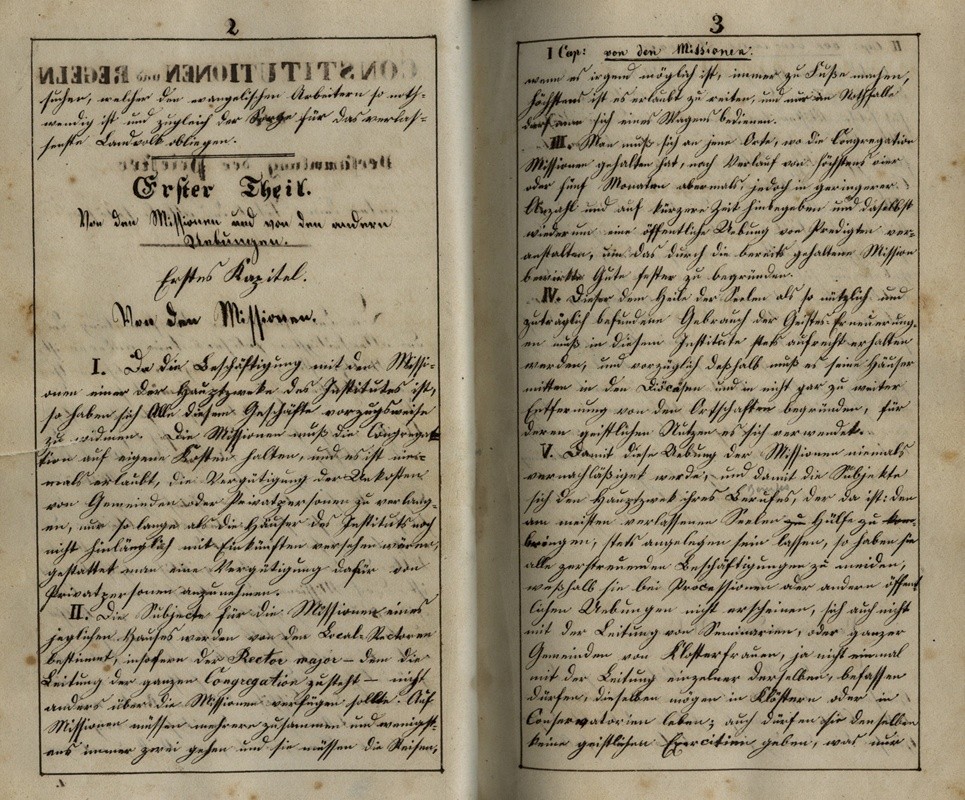 2
suchen, welcher den evangelischen Arbeitern so noth-
wendig ist und zugleich der Sorge für das verlas-
senste Landvolk obliegen.
Erster Theil.
Von den Missionen und von den andern
Uebungen.
Erstes Kapitel.
Von den Missionen.
I. Da die Beschäftigung mit den Missi-
onen einer der Hauptzwecke des Institutes ist,
so haben sich Alle diesem Geschäfte vorzugsweise
zu widmen. Die Missionen muß die Congrega-
tion auf eigene Kosten halten, und es ist nie-
mals erlaubt, die Vergütigung der Unkosten
von Gemeinden oder Privatpersonen zu verlang-
en, nur so lange als die Häuser des Instituts noch
nicht hinlänglich mit Einkünften versehen wären,
gestattet man eine Vergütigung dafür von
Privatpersonen anzunehmen.
II. Die Subjecte für die Missionen eines
jeglichen Hauses werden von den Local-Rectoren
bestimmt, insofern der Rector major – dem die
Leitung der ganzen Congregation zusteht – nicht
anders über die Missionen verfügen sollte. Auf
Missionen müssen mehrere zusammen und wenigst-
ens immer zwei gehen und sie müssen die Reisen,
3
I Cap: von den Missionen.
wenn es irgend möglich ist, immer zu Fuße machen,
höchstens ist es erlaubt zu reiten, und nur im Nothfalle
darf man sich eines Wagens bedienen.
III. Man muß sich an jene Orte, wo die Congregation
Missionen gehalten hat, nach Verlauf von höchstens vier
oder fünf Monaten abermals, jedoch in geringerer
Anzahl und auf kürzere Zeit hinbegeben und daselbst
wiederum eine öffentliche Uebung von Predigten ver-
anstalten, um das durch die bereits gehaltene Mission
bewirkte Gute fester zu begründen.
IV. Dieser dem Heile der Seelen als so nützlich und
zuträglich befundene Gebrauch der Geistes-Erneuerung-
en muß in diesem Institute stets aufrecht erhalten
werden, und vorzüglich deßhalb muß es seine Häuser
mitten in den Diöcesen und in nicht gar zu weiter
Entfernung von den Ortschaften begründen, für
deren geistlichen Nutzen es sich verwendet.
V. Damit diese Uebung der Missionen niemals
vernachläßiget werde, und damit die Subjekte
sich den Hauptzwek ihres Berufes, der da ist: den
am meisten verlassenen Seelen zu Hülfe zu kom-
bringen, stets angelegen sein lassen, so haben sie
alle zerstreuenden Beschäftigungen zu meiden,
weßhalb sie bei Processionen oder andern öffent-
lichen Uebungen nicht erscheinen, sich auch nicht
mit der Leitung von Seminarien, oder ganzer
Gemeinden von Klosterfrauen, ja nicht einmal
mit der Leitung einzelner derselben, befassen
dürfen, dieselben mögen in Klöstern oder in
Conservatorien leben; auch dürfen sie denselben
keine geistlichen Exercitien geben, was nur